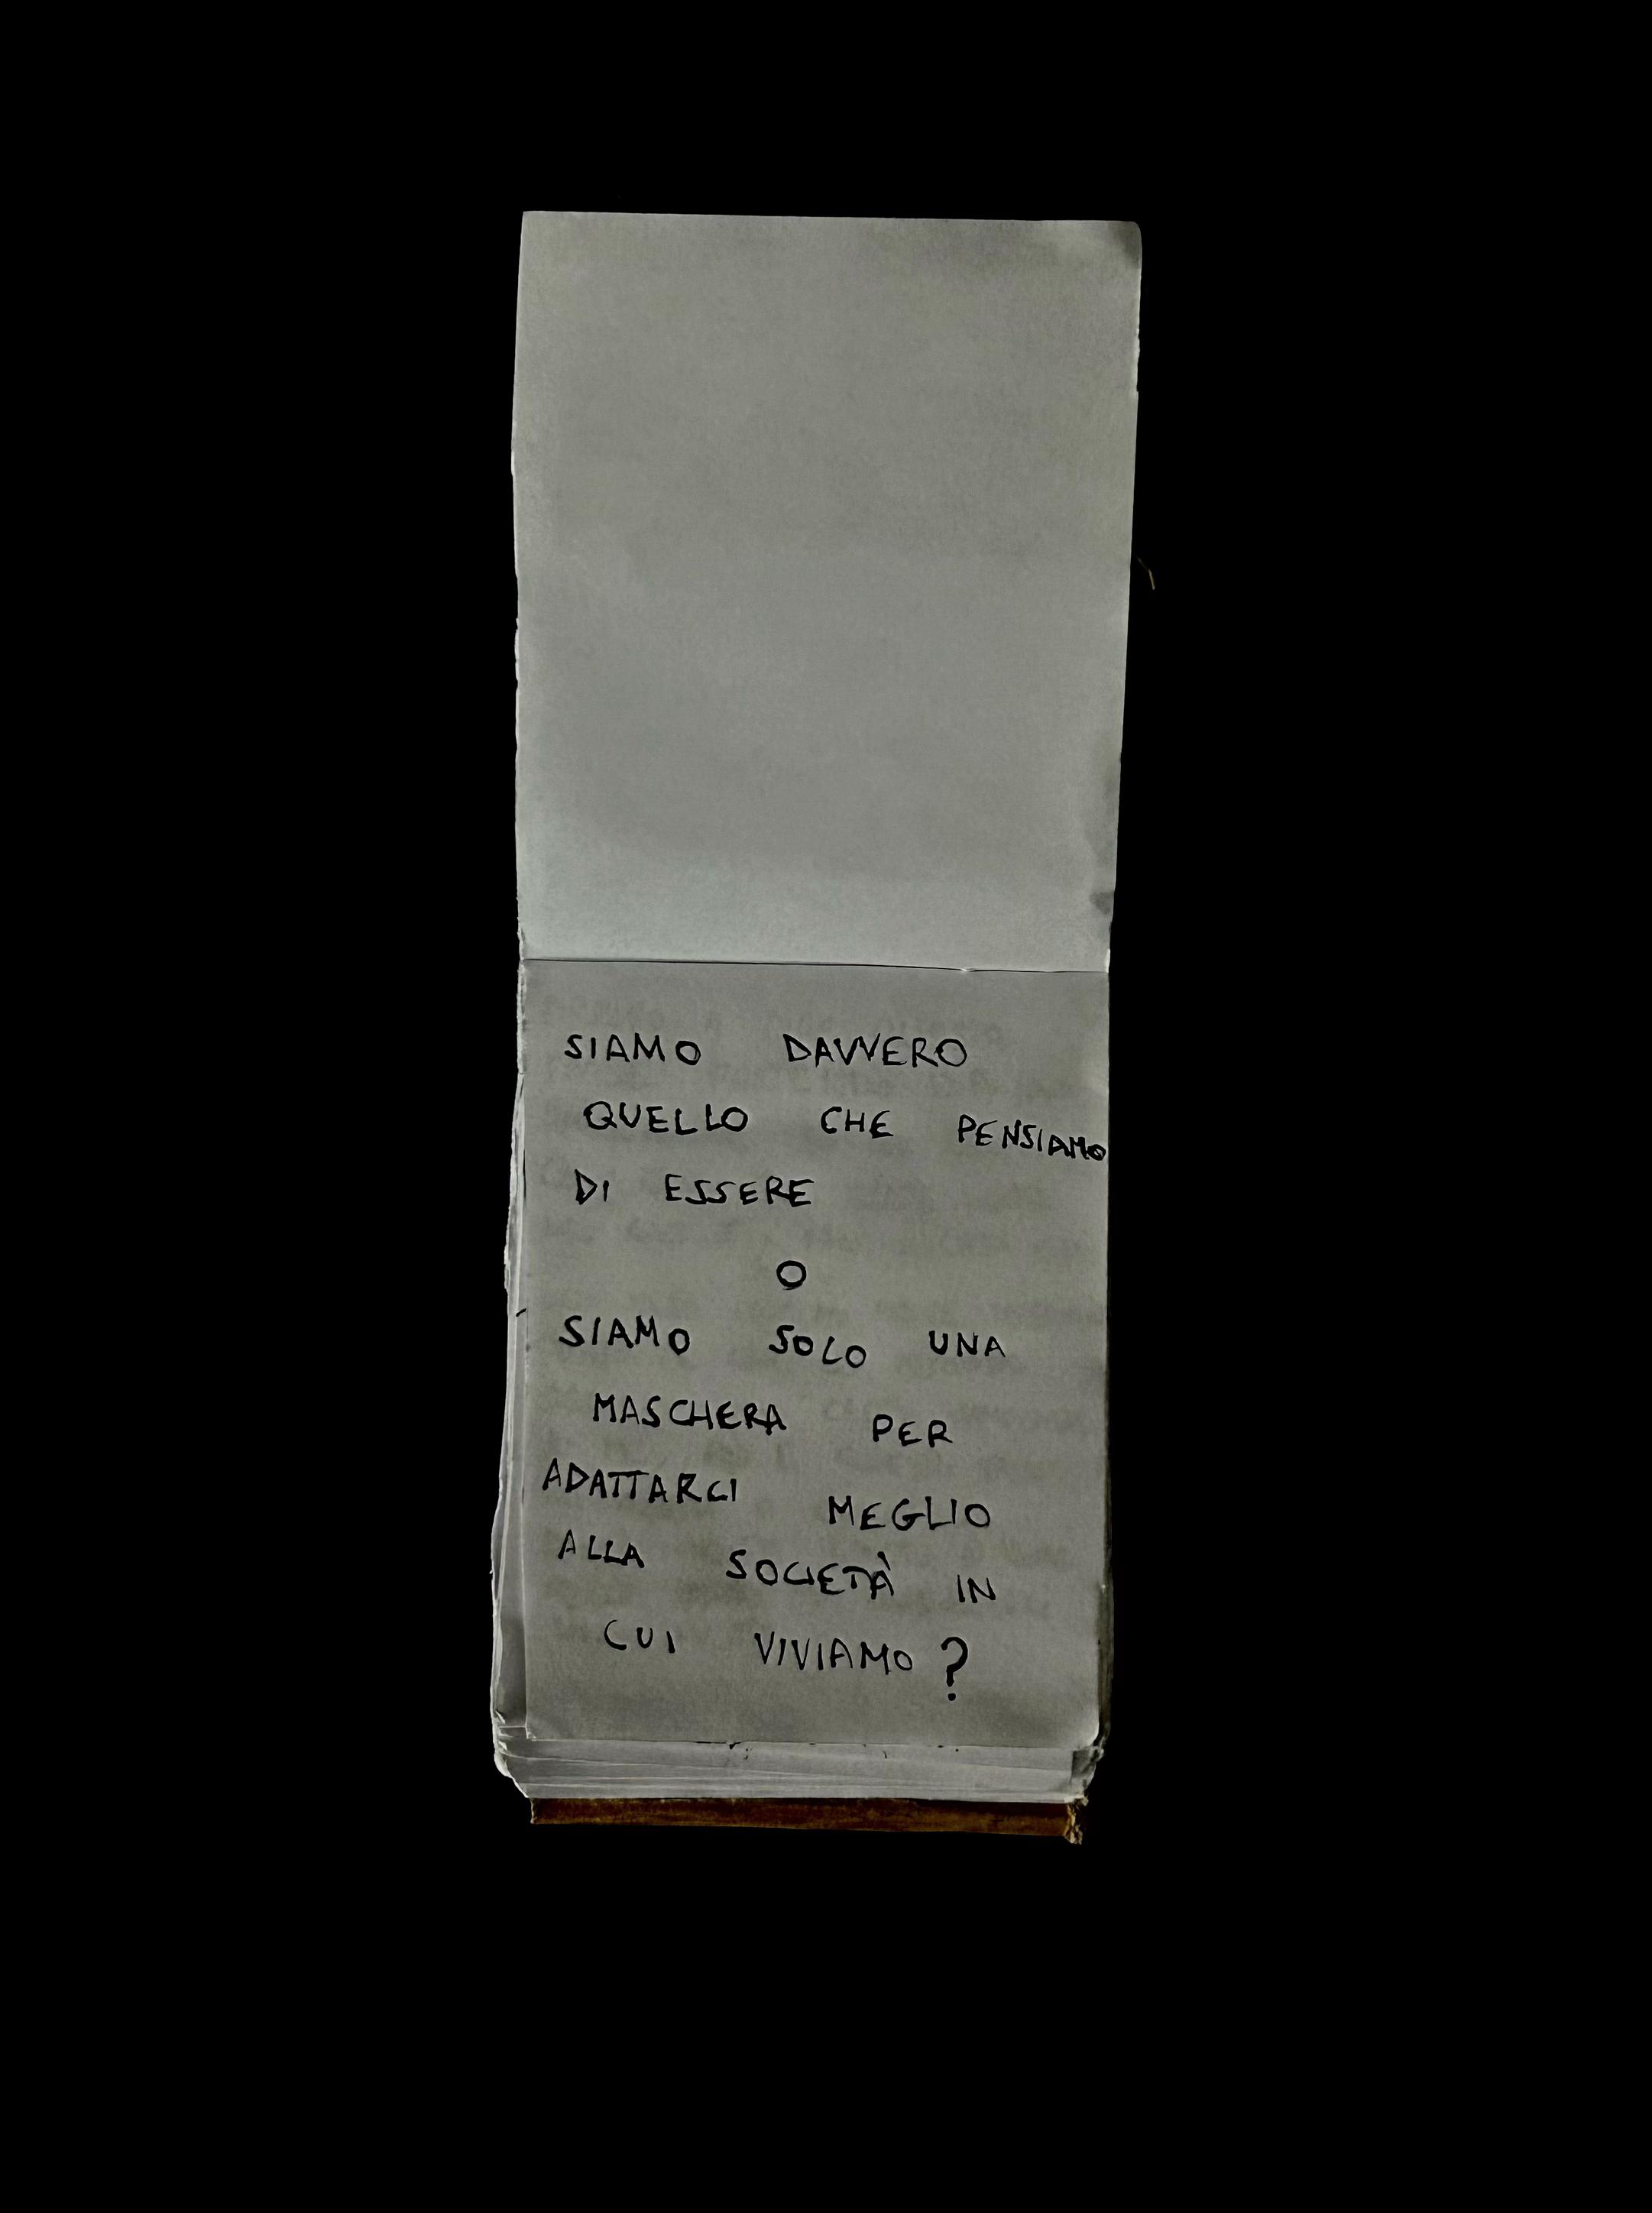 SIAMO DAVVERO
QUELLO CHE PENSIAMO
DI ESSERE
O
SIAMO SOLO UNA
MASCHERA PER
ADATTARCI MEGLIO
ALLA SOCIETÀ IN
CUI VIVIAMO?